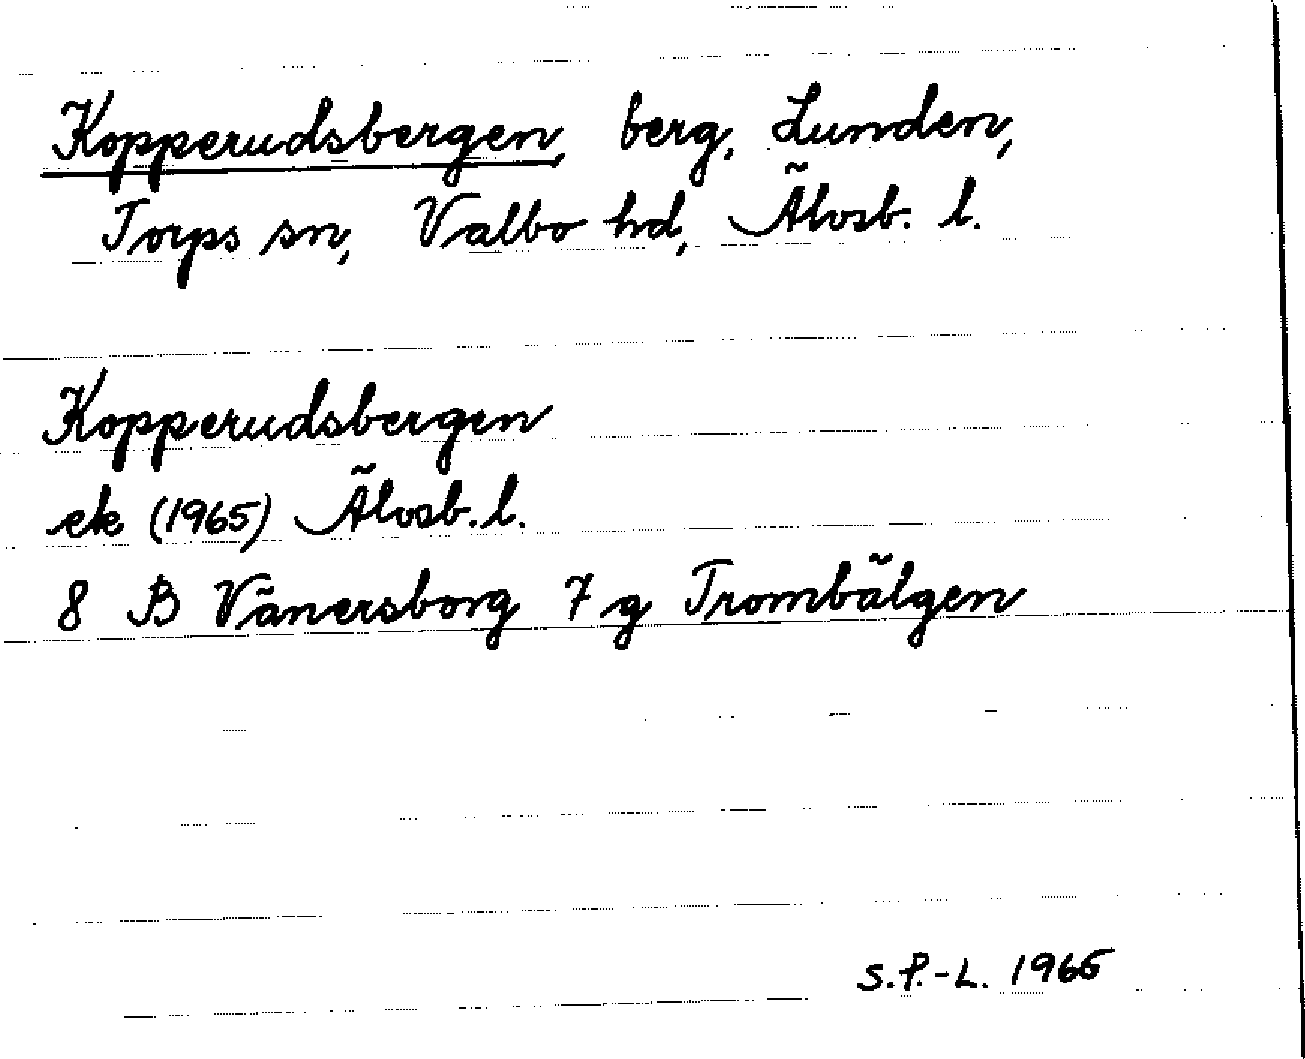 Kopperudsbergen, berg, Lunden,
Torps sn, Valbo hd, Älvsb. l.
Kopperudsbergen
ek (1965) Älvsb. l.
8 B Vänersborg 7 g Trombälgen
S.P.-L. 1965